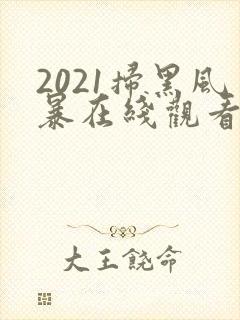 2021掃黑風
暴在綫觀看
大王饒命